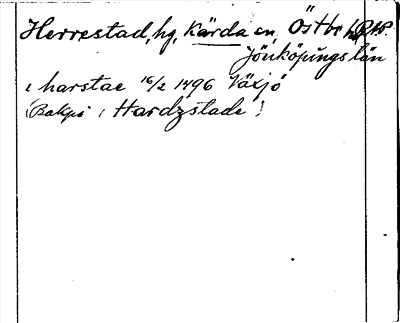 Herrestad, hg, Kärda sn, Östbo hd
Jönköpings län
i harstae 16/2 1496 Växjö
(Bakpå i Hardzstade!